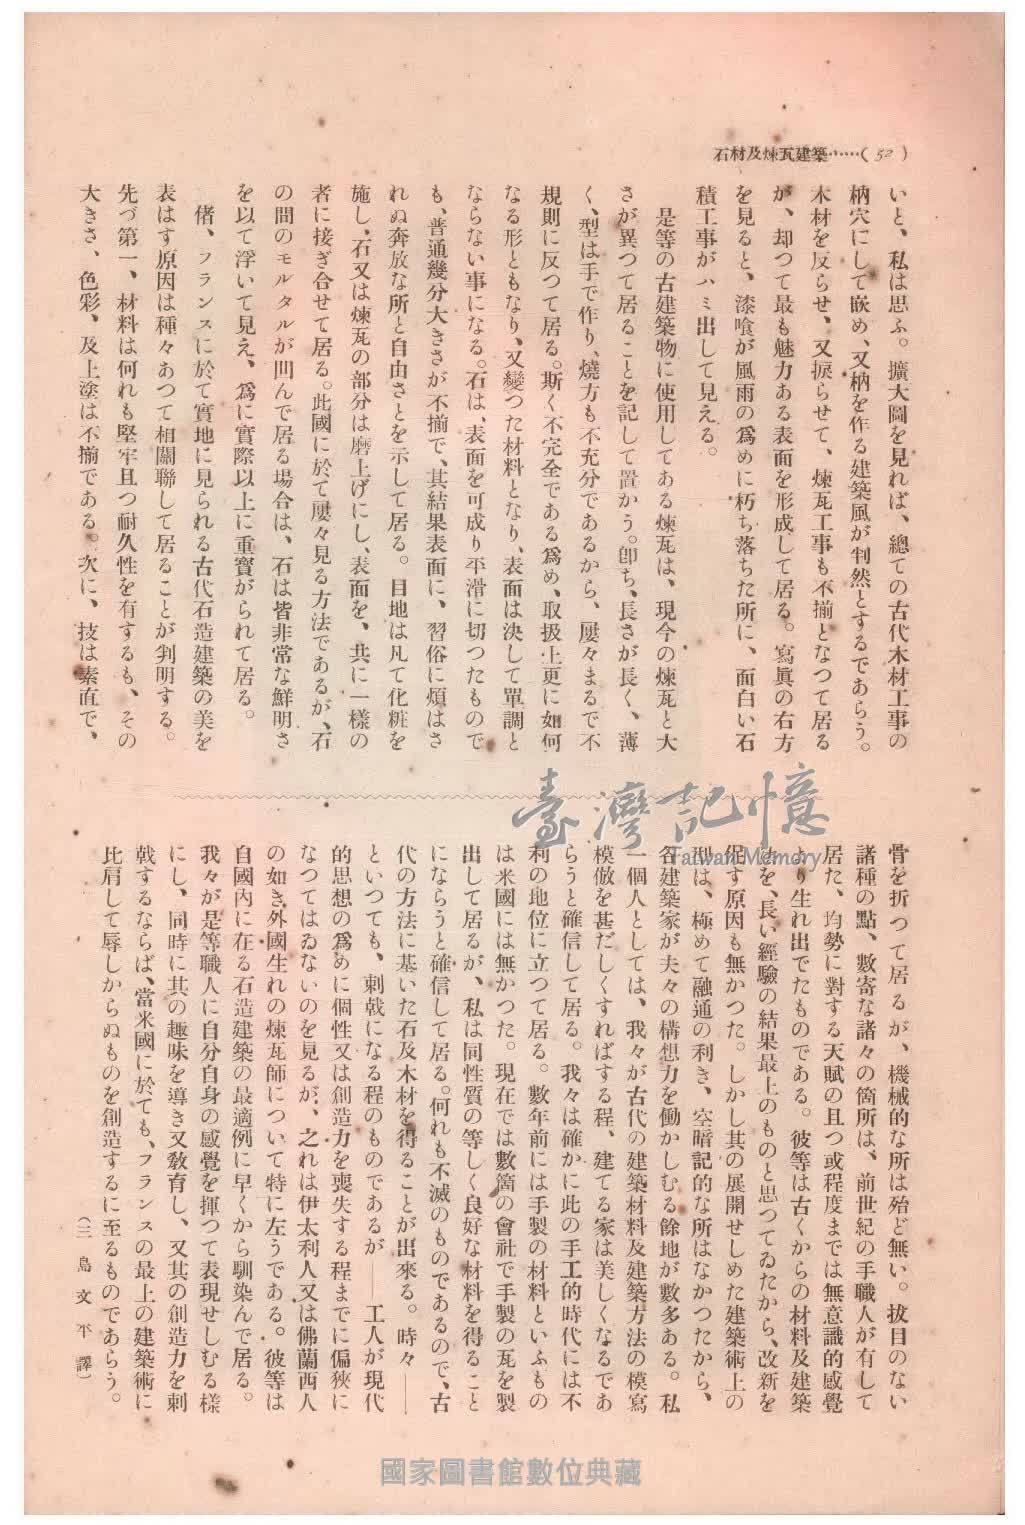 石材及煉瓦建築……( 52 )
いと、私は思ふ。擴大圖を見れば、總ての古代木材工事の
枘穴にして嵌め、又枘を作る建築風が判然とするであらう。
木材を反らせ、又捩らせて、煉瓦工事も不揃となつて居る
が、却つて最も魅力ある表面を形成して居る。寫眞の右方
を見ると、漆喰が風雨の爲めに朽ち落ちた所に、面白い石
積工事がハミ出して見える。
是等の古建築物に使用してある煉瓦は、現今の煉瓦と大
さが異つて居ることを記して置かう。卽ち、長さが長く、薄
く、型は手で作り、燒方も不充分であるから、屢々まるで不
規則に反つて居る。斯く不完全である爲め、取扱上更に如何
なる形ともなり、又變つた材料となり、表面は決して單調と
ならない事になる。石は、表面を可成り平滑に切つたもので
も、普通幾分大きさが不揃で、其結果表面に、習俗に煩はさ
れぬ奔放な所と自由さとを示して居る。目地は凡て化粧を
施し、石又は煉瓦の部分は磨上げにし、表面を、共に一樣の
者に接ぎ合せて居る。此國に於て屢々見る方法であるが、石
の間のモルタルが凹んで居る場合は、石は皆非常な鮮明さ
を以て浮いて見え、爲に實際以上に重寳がられて居る。
偖、フランスに於て實地に見られる古代石造建築の美を
表はす原因は種々あつて相關聯して居ることが判明する。
先づ第一、材料は何れも堅牢且つ耐久性を有するも、その
大きさ、色彩、及上塗は不揃である。次に、技は素直で、
骨を折つて居るが、機械的な所は殆ど無い。拔目のない
諸種の點、數寄な諸々の箇所は、前世紀の手職人が有して
居た、均勢に對する天賦の且つ或程度までは無意識的感覺
より生れ出でたものである。彼等は古くからの材料及建築
法を、長い經驗の結果最上のものと思つてゐたから、改新を
促す原因も無かつた。しかし其の展開せしめた建築術上の
型は、極めて融通の利き、空暗記的な所はなかつたから、
各建築家が夫々の構想力を働かしむる餘地が數多ある。私
一個人としては、我々が古代の建築材料及建築方法の模寫
模倣を甚だしくすればする程、建てる家は美しくなるであ
らうと確信して居る。我々は確かに此の手工的時代には不
利の地位に立つて居る。數年前には手製の材料といふもの
は米國には無かつた。現在では數箇の會社で手製の瓦を製
出して居るが、私は同性質の等しく良好な材料を得ること
にならうと確信して居る。何れも不滅のものであるので、古
代の方法に基いた石及木材を得ることが出來る。時々――
といつても、刺戟になる程のものであるが――工人が現代
的思想の爲めに個性又は創造力を喪失する程までに偏狹に
なつてはゐないのを見るが、之れは伊太利人又は佛蘭西人
の如き外國生れの煉瓦師について特に左うである。彼等は
自國內に在る石造建築の最適例に早くから馴染んで居る。
我々が是等職人に自分自身の感覺を揮つて表現せしむる樣
にし、同時に其の趣味を導き又敎育し、又其の創造力を刺
戟するならば、當米國に於ても、フランスの最上の建築術に
比肩して辱しからぬものを創造するに至るものであらう。
(三島文平譯)
臺灣記憶
Taiwan Memory
國家圖書館數位典藏